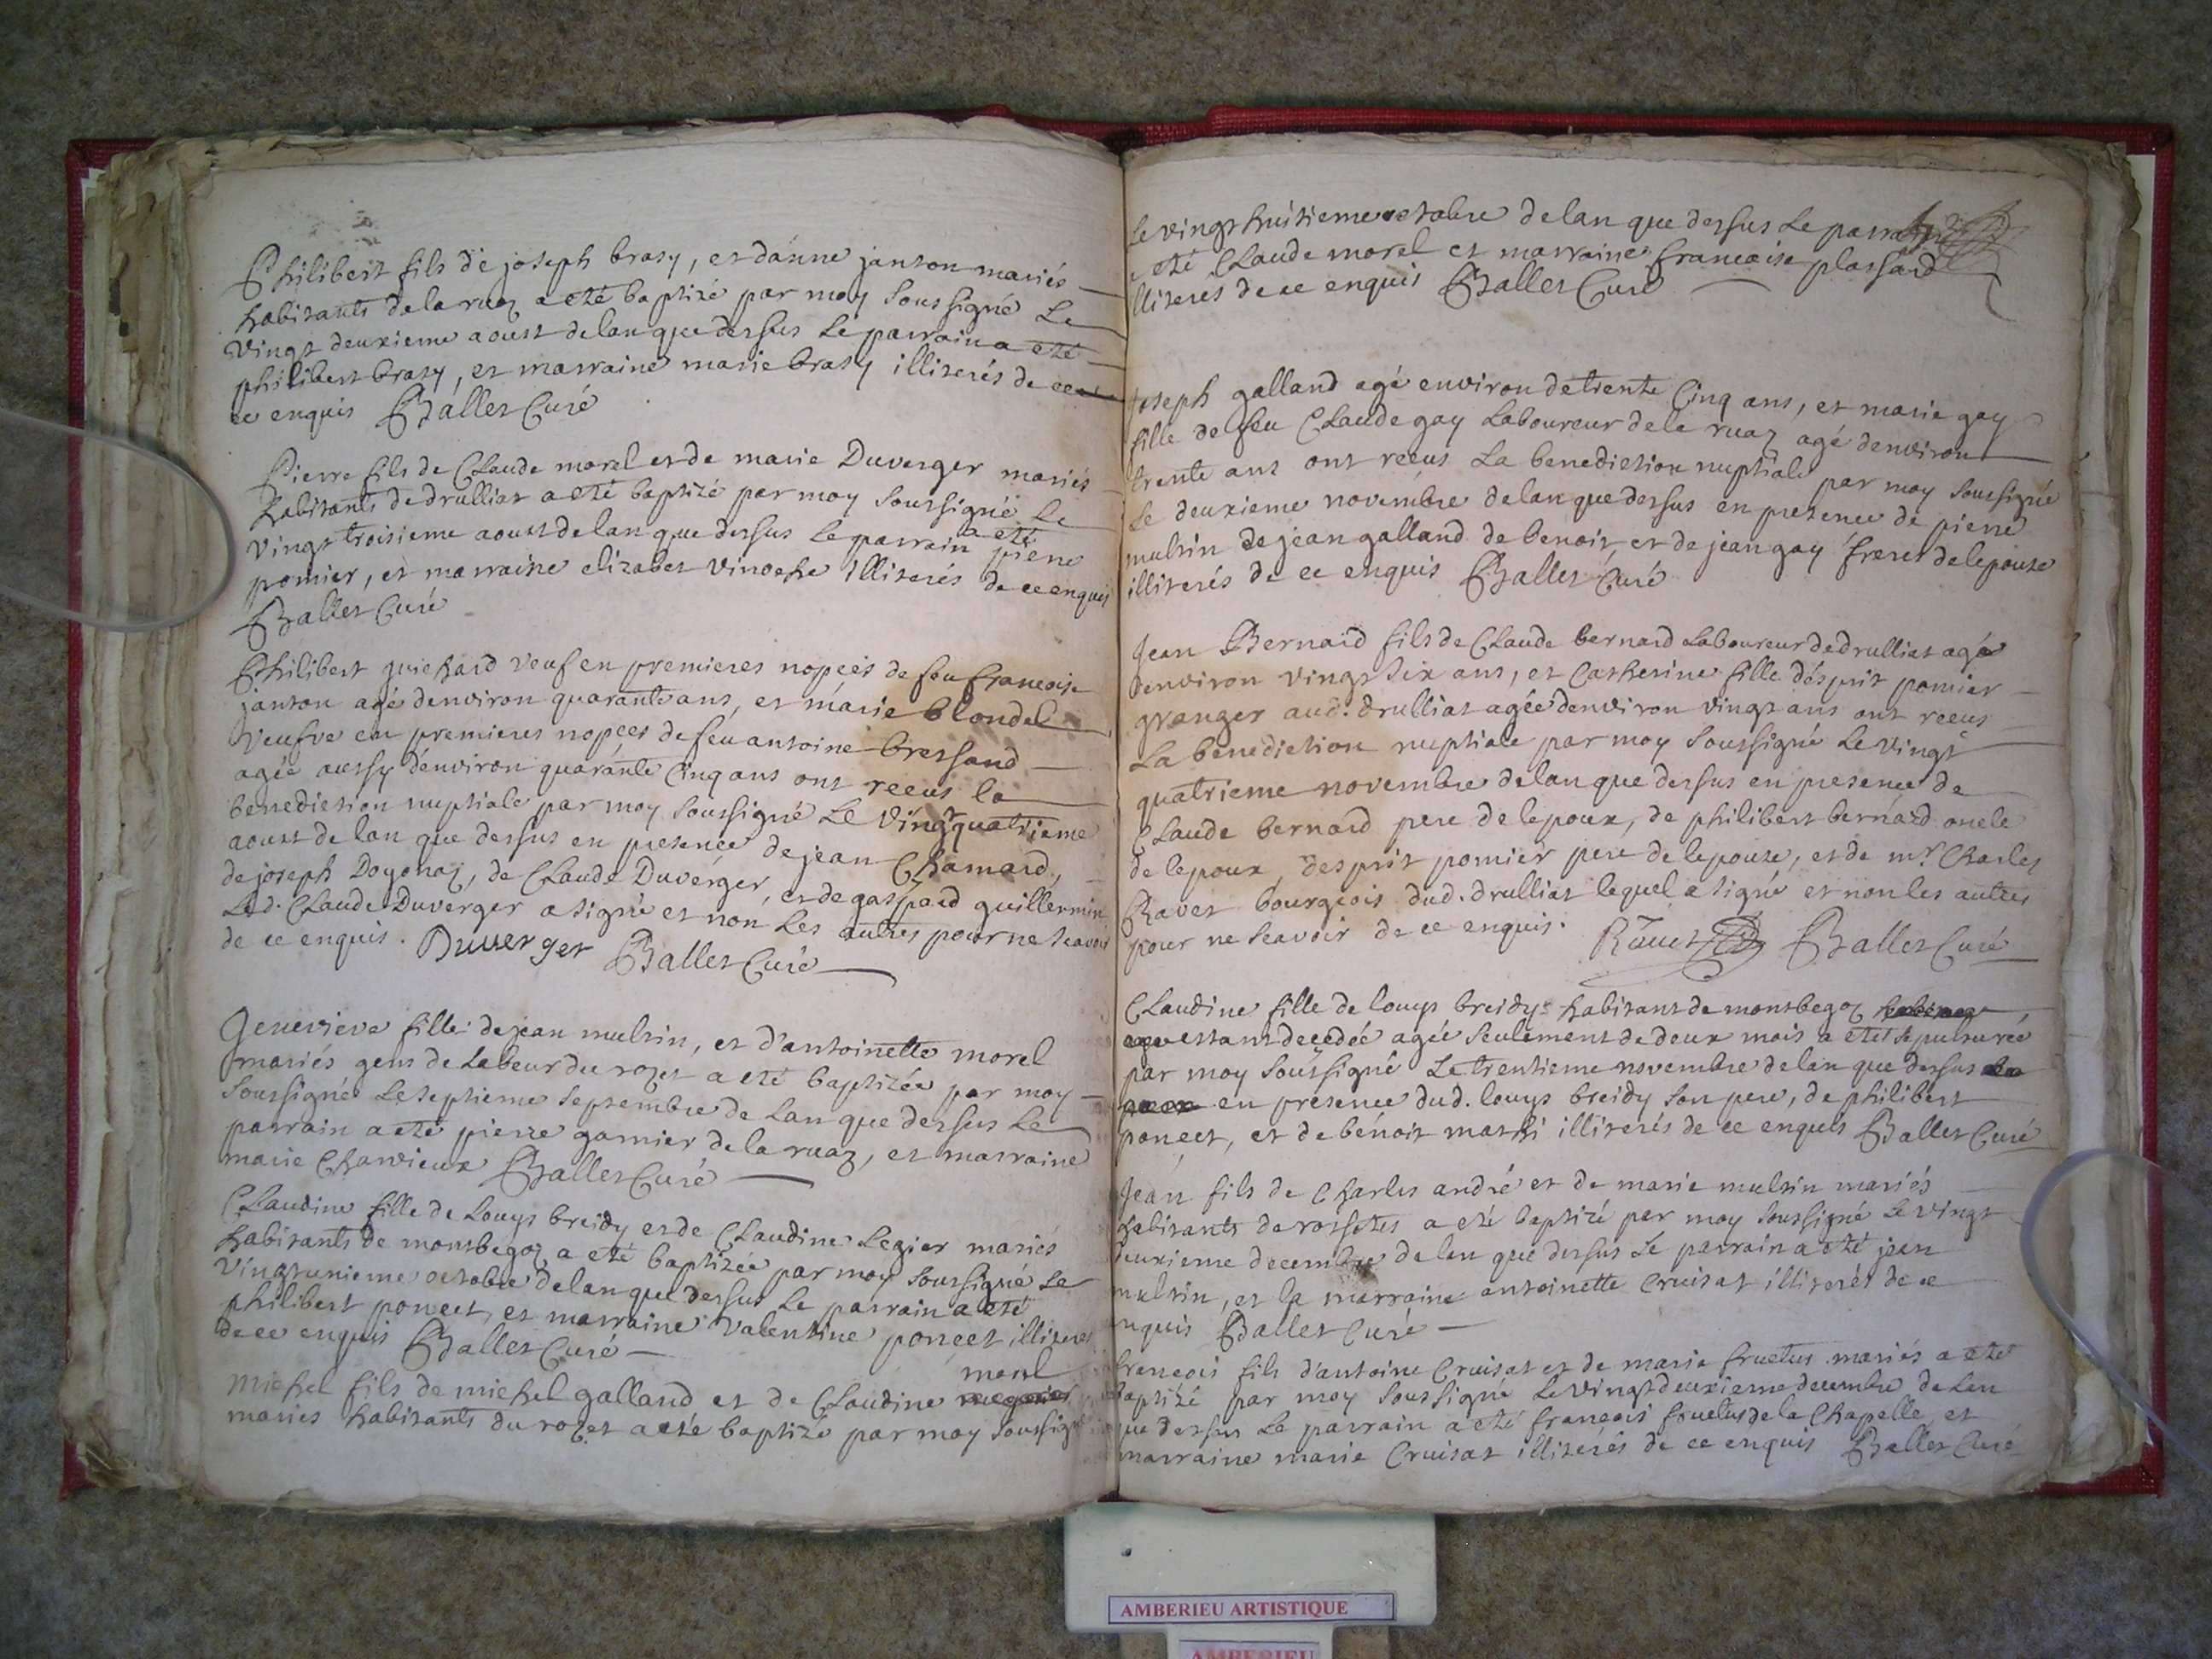 Philibert fils de joseph brasy, et danne janton mariés
habitants de la ruaz a eté baptizé par moy soussigné Le
vingt deuxieme aoust de lan que dessus Le parrain a eté
philibert brasy, et marraine marie brasy illiterés de ce
ce enquis Ballet Curé
Pierre fils de Claude morel et de marie Duverger mariés
habitants de drulliat a eté baptizé par moy soussigné Le
vingt troisieme aoust de lan que dessus Le parrain a eté pierre
pomier, et marraine elizabet vinoche illiterés de ce enquis
Ballet Curé
Philibert guichard veuf en premieres nopces de feu francoise
janton agé denviron quarante ans, et marie blondel
veufve en premieres nopces de feu antoine bressand
agée aussy denviron quarante Cinq ans ont receus la
benediction nuptiale par moy soussigné Le vingt quatrieme
aoust de lan que dessus en presence de jean Chamard,
de joseph Dogonaz, de Claude Duverger, et de gaspard guillermin
Led. Claude Duverger a signé et non Les autres pour ne scavoir
de ce enquis. Duverger Ballet Curé
Genevieve fille de jean multin, et d'antoinette morel
mariés gens de Labeur du rozet a eté baptizée par moy
soussigné Le septieme septembre de Lan que dessus Le
parrain a eté pierre garnier de la ruaz, et marraine
marie Charvieux Ballet Curé
Claudine fille de Louys breidy et de Claudine Legier mariés
habitants de montbegoz a eté baptizée par moy soussigné Le
vingt unieme octobre de lan que dessus Le parrain a eté
philibert poncet, et marraine valentine poncet illiteres
de ce enquis Ballet Curé
morel
michel fils de michel galland et de Claudine
mariés habitants du rozet a eté baptizé par moy soussigné
Le vingt huitieme octobre de lan que dessus Le parrain
eté Claude morel et marraine francoise plassard
lliterés de ce enquis Ballet Curé
Joseph galland agé environ de trente Cinq ans, et marie gay
fille de feu Claude gay Laboureur de la ruaz agé denviron
trente ans ont receus La benediction nuptiale par moy soussigné
Le deuxieme novembre de lan que dessus en presence de pierre
multin de jean galland de benoit, et de jean gay freres de lepouse
illiterés de ce enquis Ballet Curé
Jean Bernard fils de Claude bernard Laboureur de drulliat agé
denviron vingt six ans, et Catherine fille desprit pomier
granger aud. drulliat agée denviron vingt ans ont receus
La benediction nuptiale par moy soussigné Le vingt
quatrieme novembre de lan que dessus en presence de
Claude bernard pere de lepoux, de philibert bernard oncle
de lepoux, desprit pomier pere de lepouse, et de mr. Charles
Ravet bourgeois dud. drulliat lequel a signé et non les autres
pour ne scavoir de ce enquis. Ravet Ballet Curé
Claudine fille de louys breidy habitant de montbegoz
estant decedée agée seulement de deux mois a eté sepulturée
par moy soussigné Le trentieme novembre de lan que dessus
en presence dud. louys breidy son pere, de philibert
poncet, et de benoit mathi illiterés de ce enquis Ballet Curé
Jean fils de Charles andré et de marie multin mariés
habitants de rossetes a eté baptizé par moy soussigné Le vingt
deuxieme decembre de lan que dessus Le parrain a eté jean
multin, et la marraine antoinette Cruisat illiterés de ce
nquis Ballet Curé
francois fils d'antoine Cruisat et de marie fructus mariés a eté
baptizé par moy soussigné Le vingt deuxieme decembre de Lan
que dessus Le parrain a eté francois fructus de la Chapelle et
marraine marie Cruisat illiterés de ce enquis Ballet Curé
AMBERIEU ARTISTIQUE
AMBERIEU